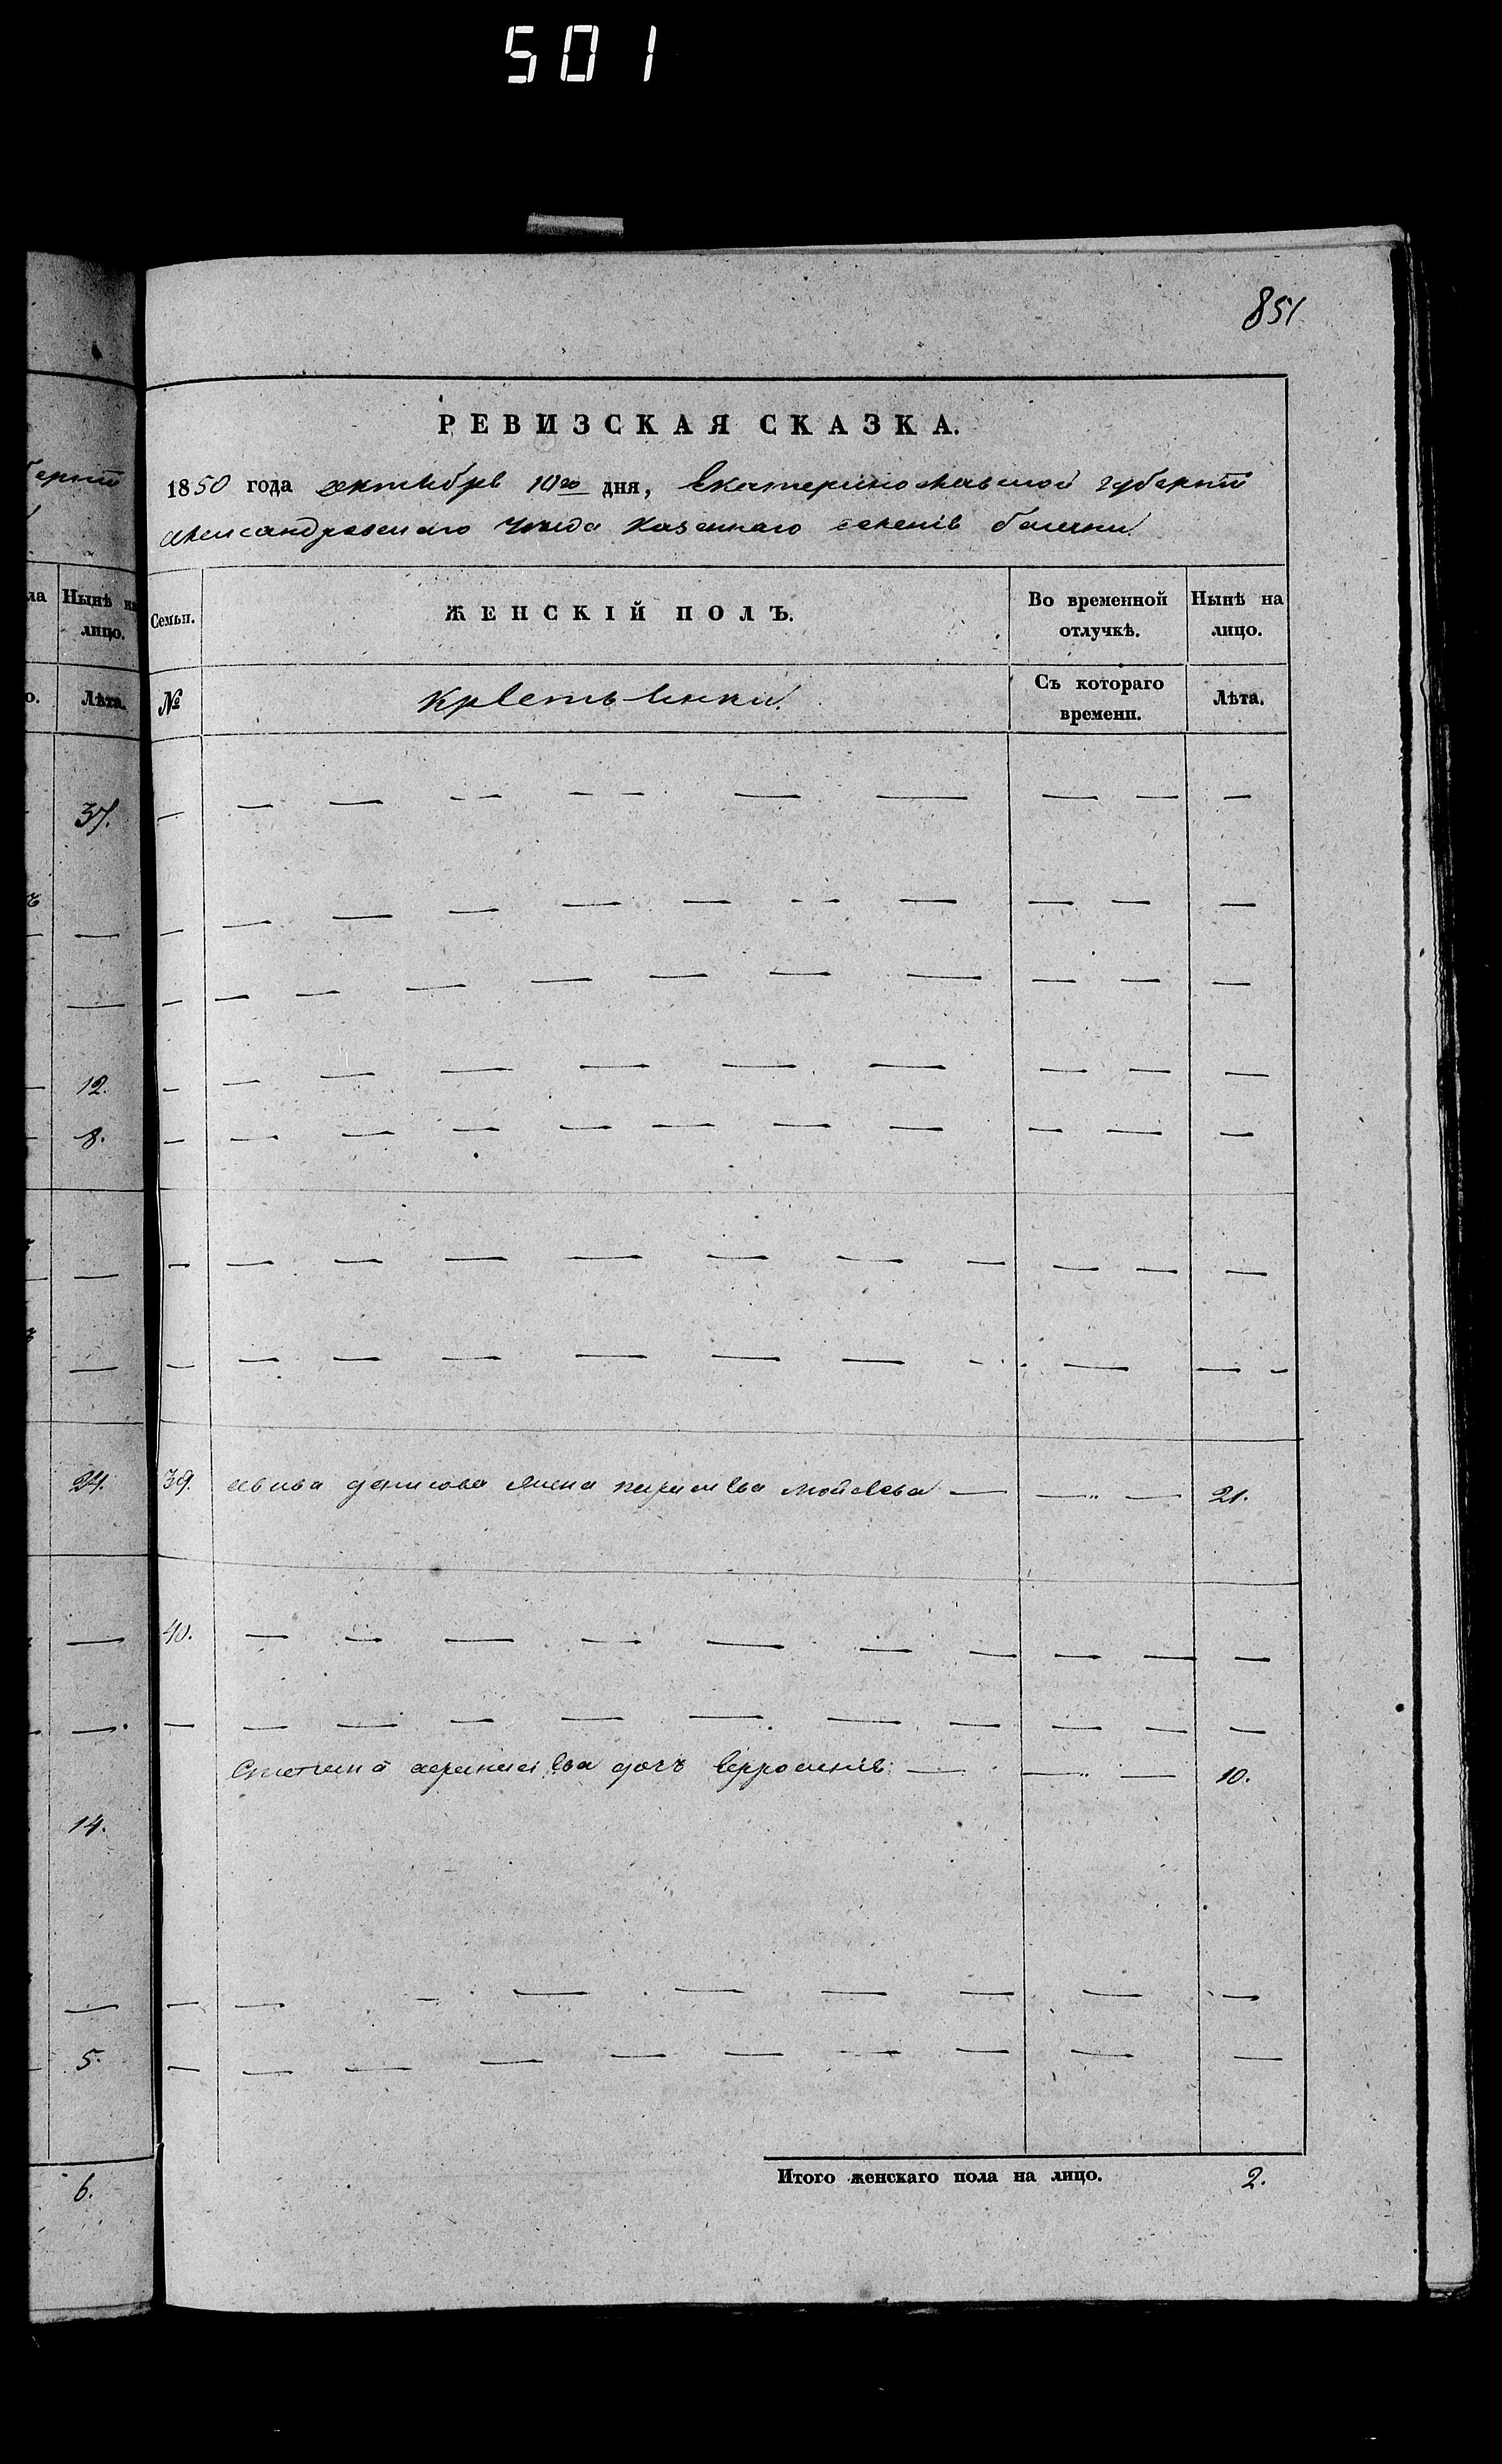 501
851
РЕВИЗСКАЯ СКАЗКА.
1850 года октября 10го дня, Екатеринославской губернии
Александровскаго уезда казеннаго селенія Балчки
Семьи.
ЖЕНСКІЙ ПОЛЪ.
Во временной отлучкѣ.
Нынѣ на лицо.
№
Крестьянки.
Съ котораго времени.
Лѣта.
39. денисова жена Моисеева — — „ — 21.
40. — — — — — — — — — —
дочь — — „ — 10.
Итого женскаго пола на лицо. 2.
Нынѣ на лицо.
Лѣта.
37.
12.
8.
24.
14.
5.
6.